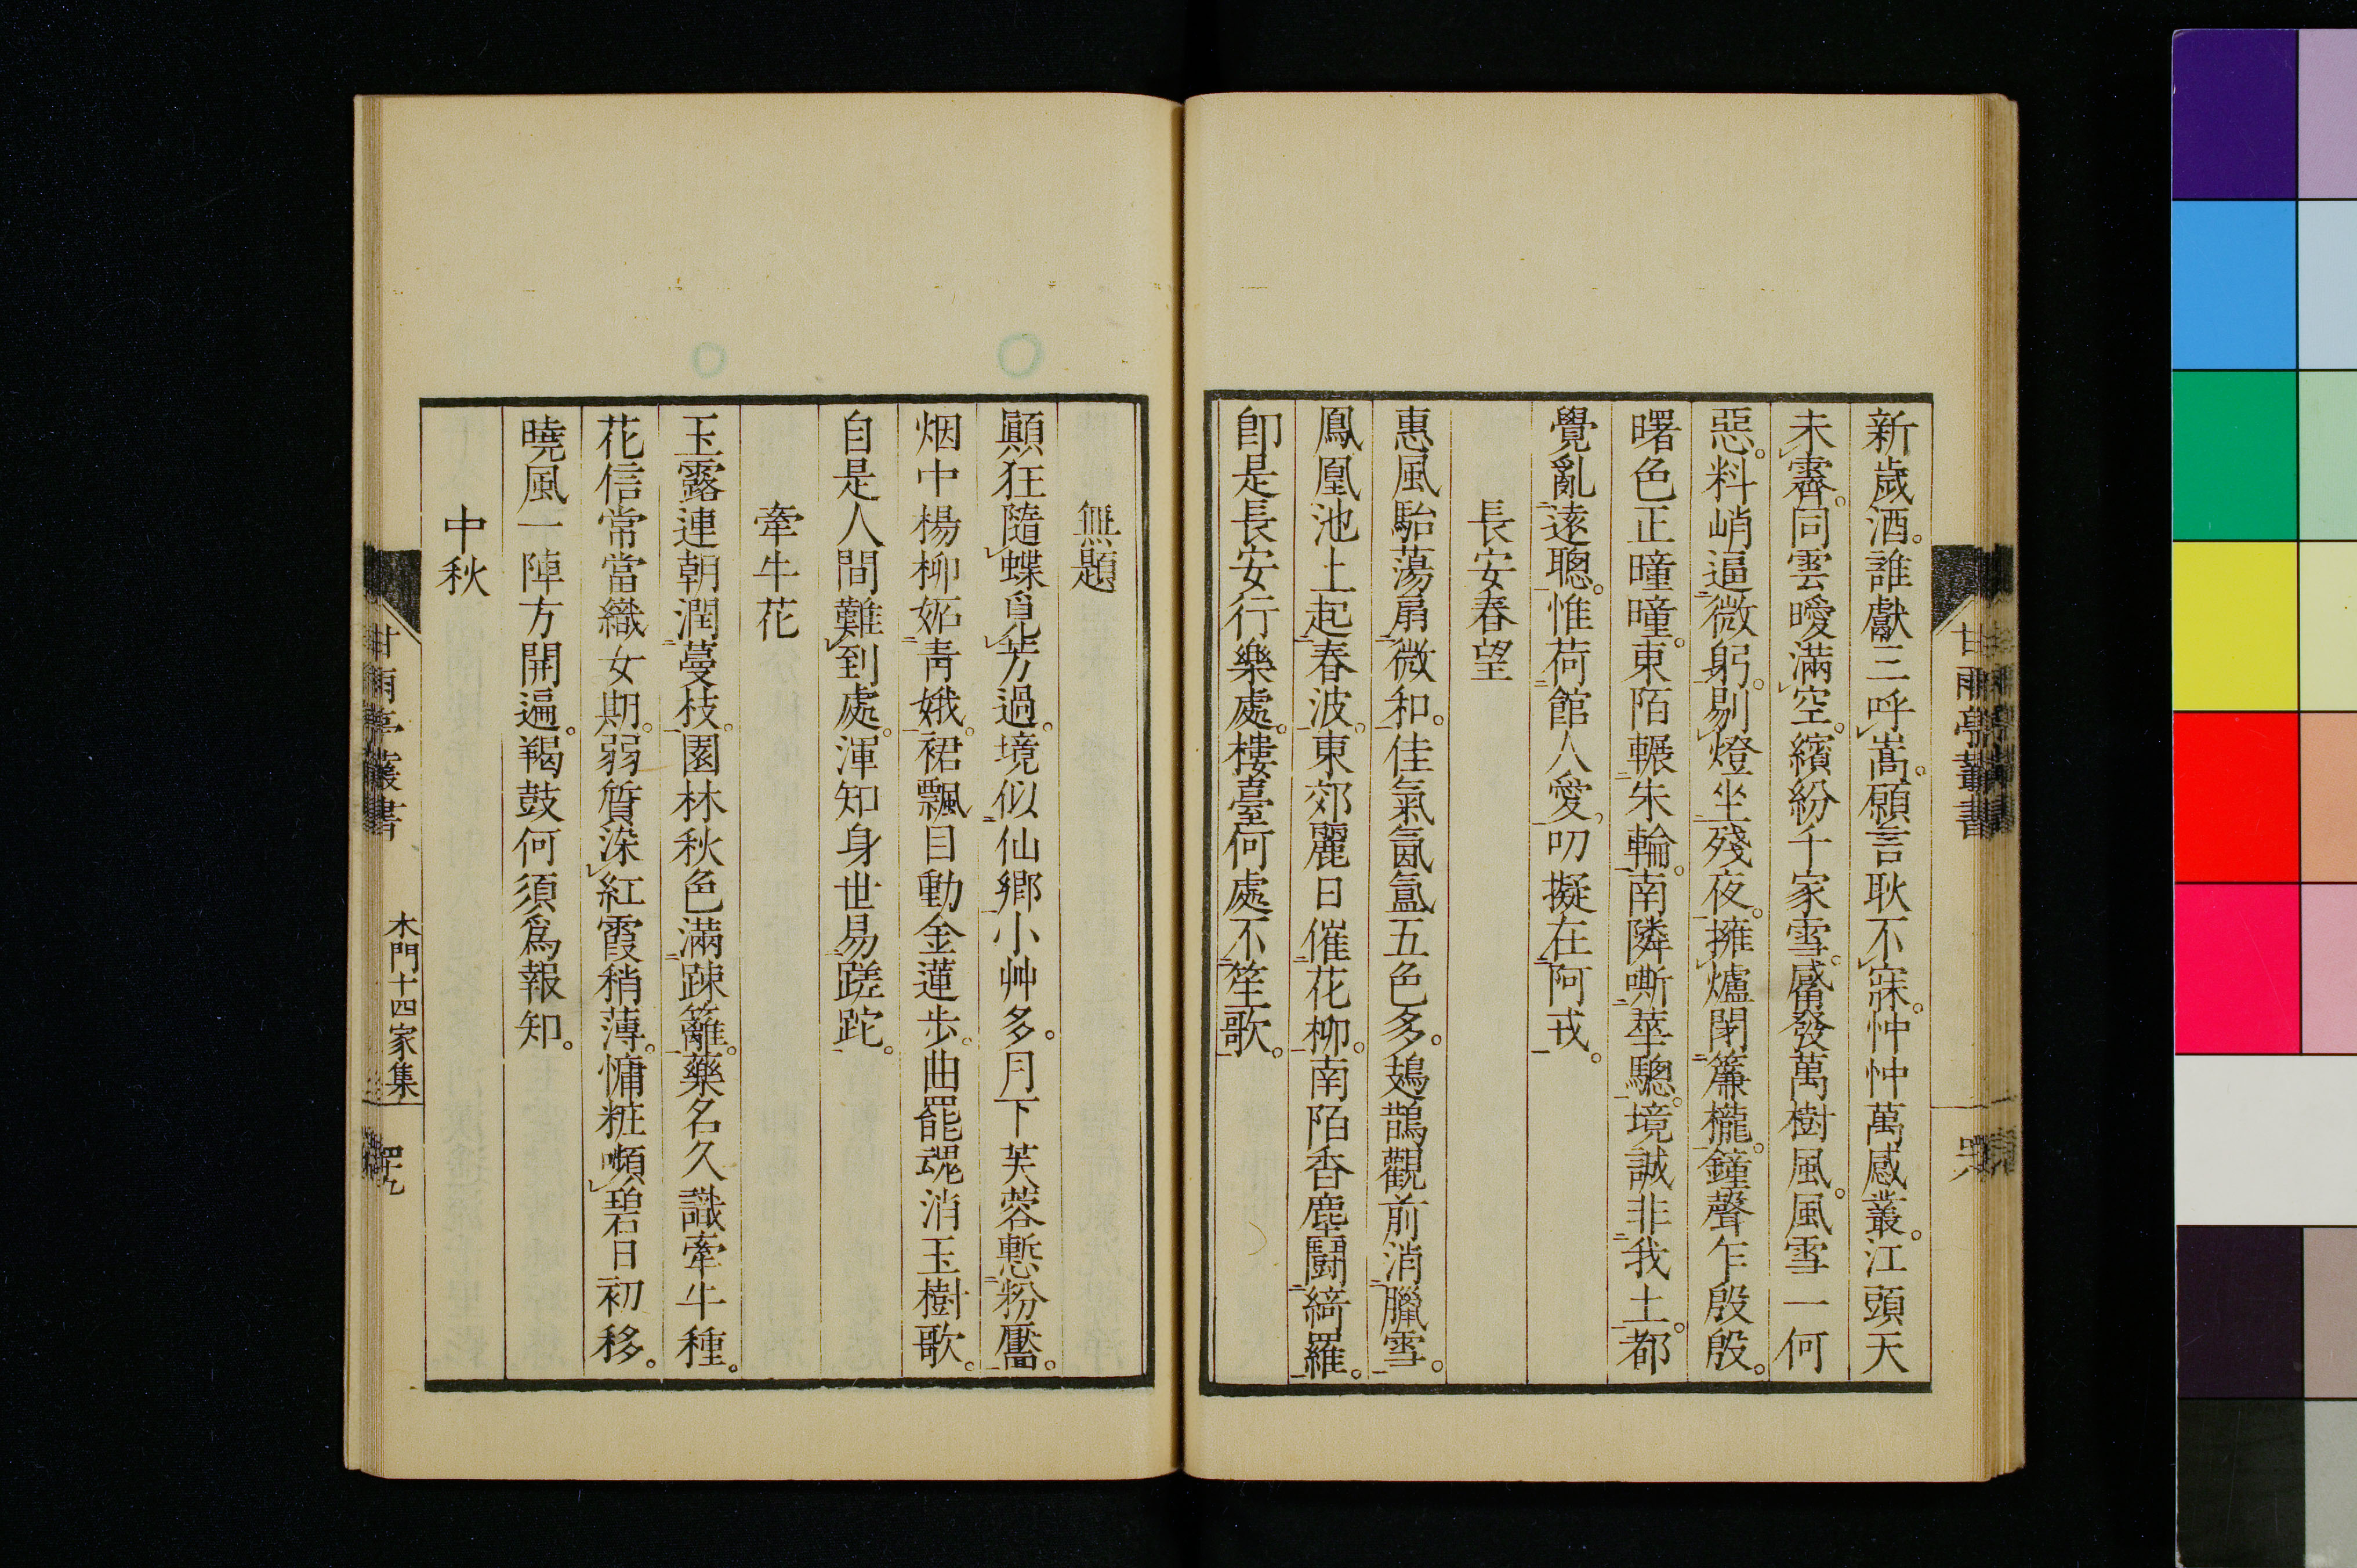 新歲酒。誰獻三呼嵩。願言耿不寐。忡忡萬感叢。江頭天
未霽。同雲曖滿空。繽紛千家雪。觱發萬樹風。風雪一何
惡。料峭逼微躬。剔燈坐殘夜。擁爐閉簾櫳。鐘聲乍殷殷。
曙色正曈曈。東陌輾朱輪。南隣嘶華驄。境誠非我土。都
覺亂遠聰。惟荷館人愛。叨擬在阿戎。
長安春望
惠風駘蕩扇微和。佳氣氤氳五色多。鳷鵲觀前消臘雪。
鳳凰池上起春波。東郊麗日催花柳。南陌香塵鬪綺羅。
卽是長安行樂處。樓臺何處不笙歌。
無題
顚狂隨蝶覓芳過。境似仙鄉小艸多。月下芙蓉慙粉靨。
烟中楊柳妬靑娥。裙飄目動金蓮步。曲罷魂消玉樹歌。
自是人間難到處。渾知身世易蹉跎。
牽牛花
玉露連朝潤蔓枝。園林秋色滿疎籬。藥名久識牽牛種。
花信常當織女期。弱質染紅霞稍薄。慵粧嚬碧日初移。
曉風一陣方開遍。羯鼓何須爲報知。
中秋
甘雨亭叢書
木門十四家集
四十九